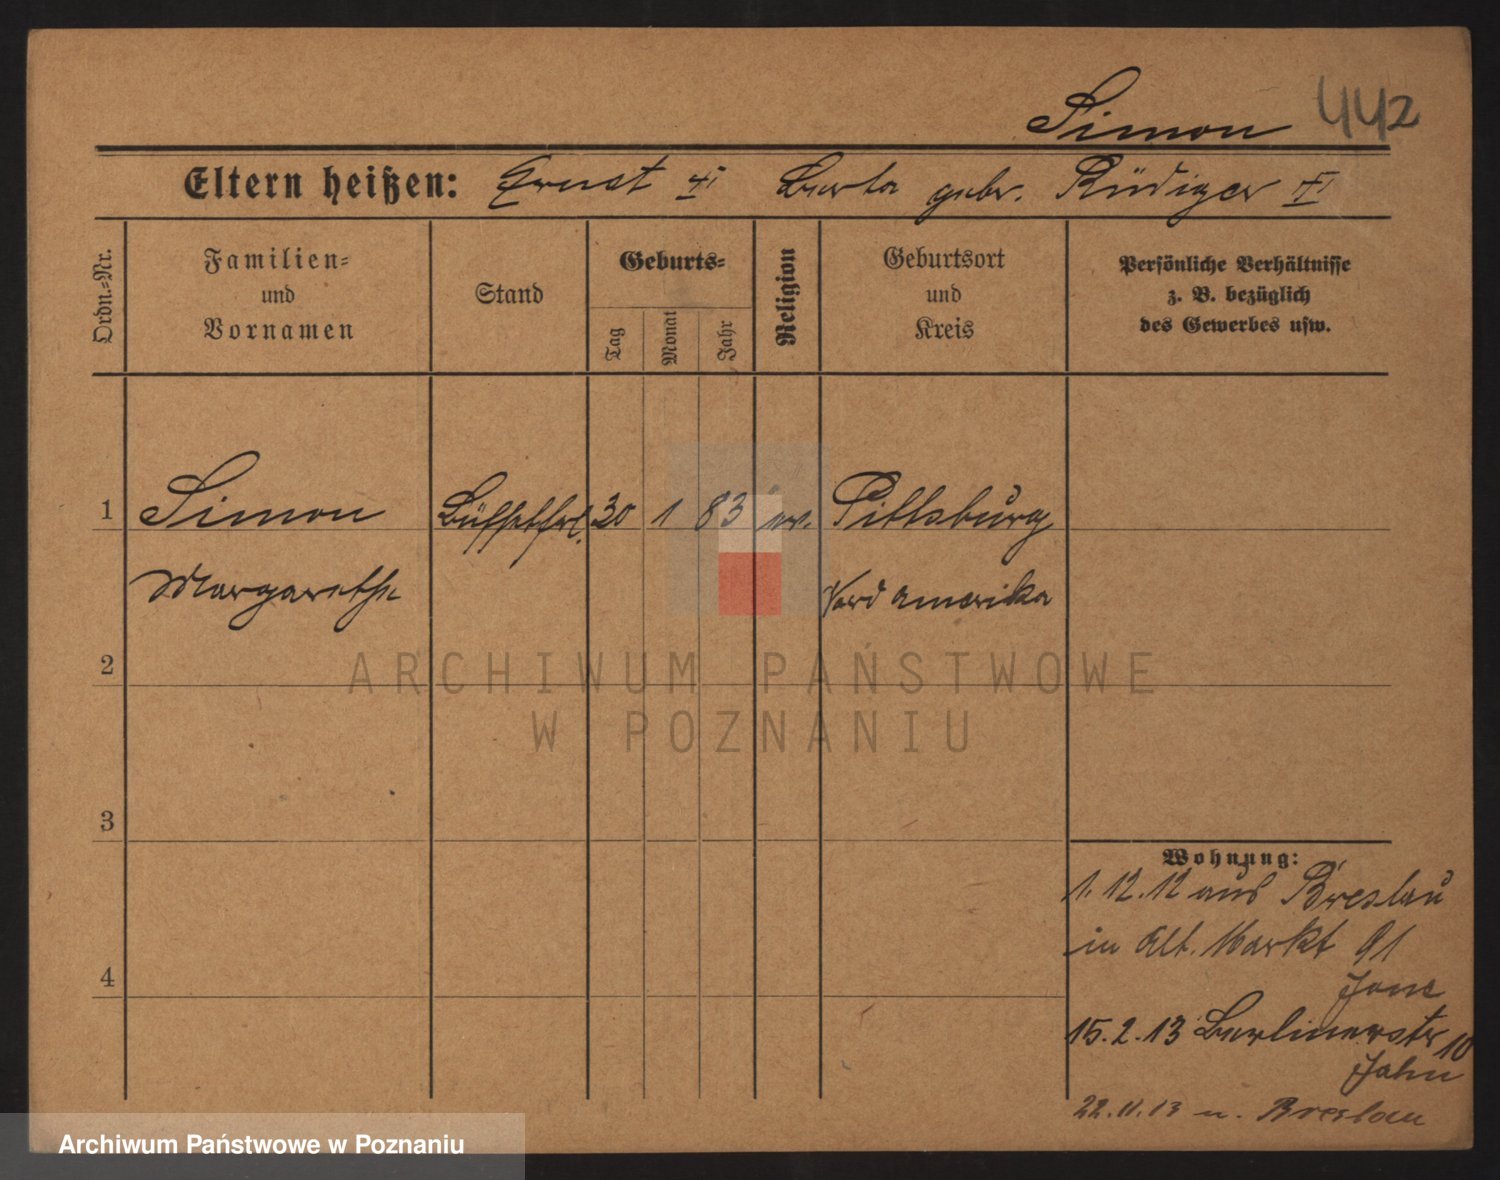 Simon 442
Eltern heißen: Ernst Berta gebr. Rüdiger
Ordn.-Nr.
Familien- und Vornamen
Stand
Geburts-
Tag
Monat
Jahr
Religion
Geburtsort und Kreis
Persönliche Verhältnisse
z. B. bezüglich
des Gewerbes usw.
1 Simon Büffetfrl. 30 1 83 ev. Pittsburg
Margarethe Nord Amerika
2
3
4
Wohnung:
1.12.12 aus Breslau
in Alt. Markt 91
15.2.13 Berlinerstr 10
Jahn
22.11.13 n. Breslau
ARCHIWUM PAŃSTWOWE
W POZNANIU
Archiwum Państwowe w Poznaniu